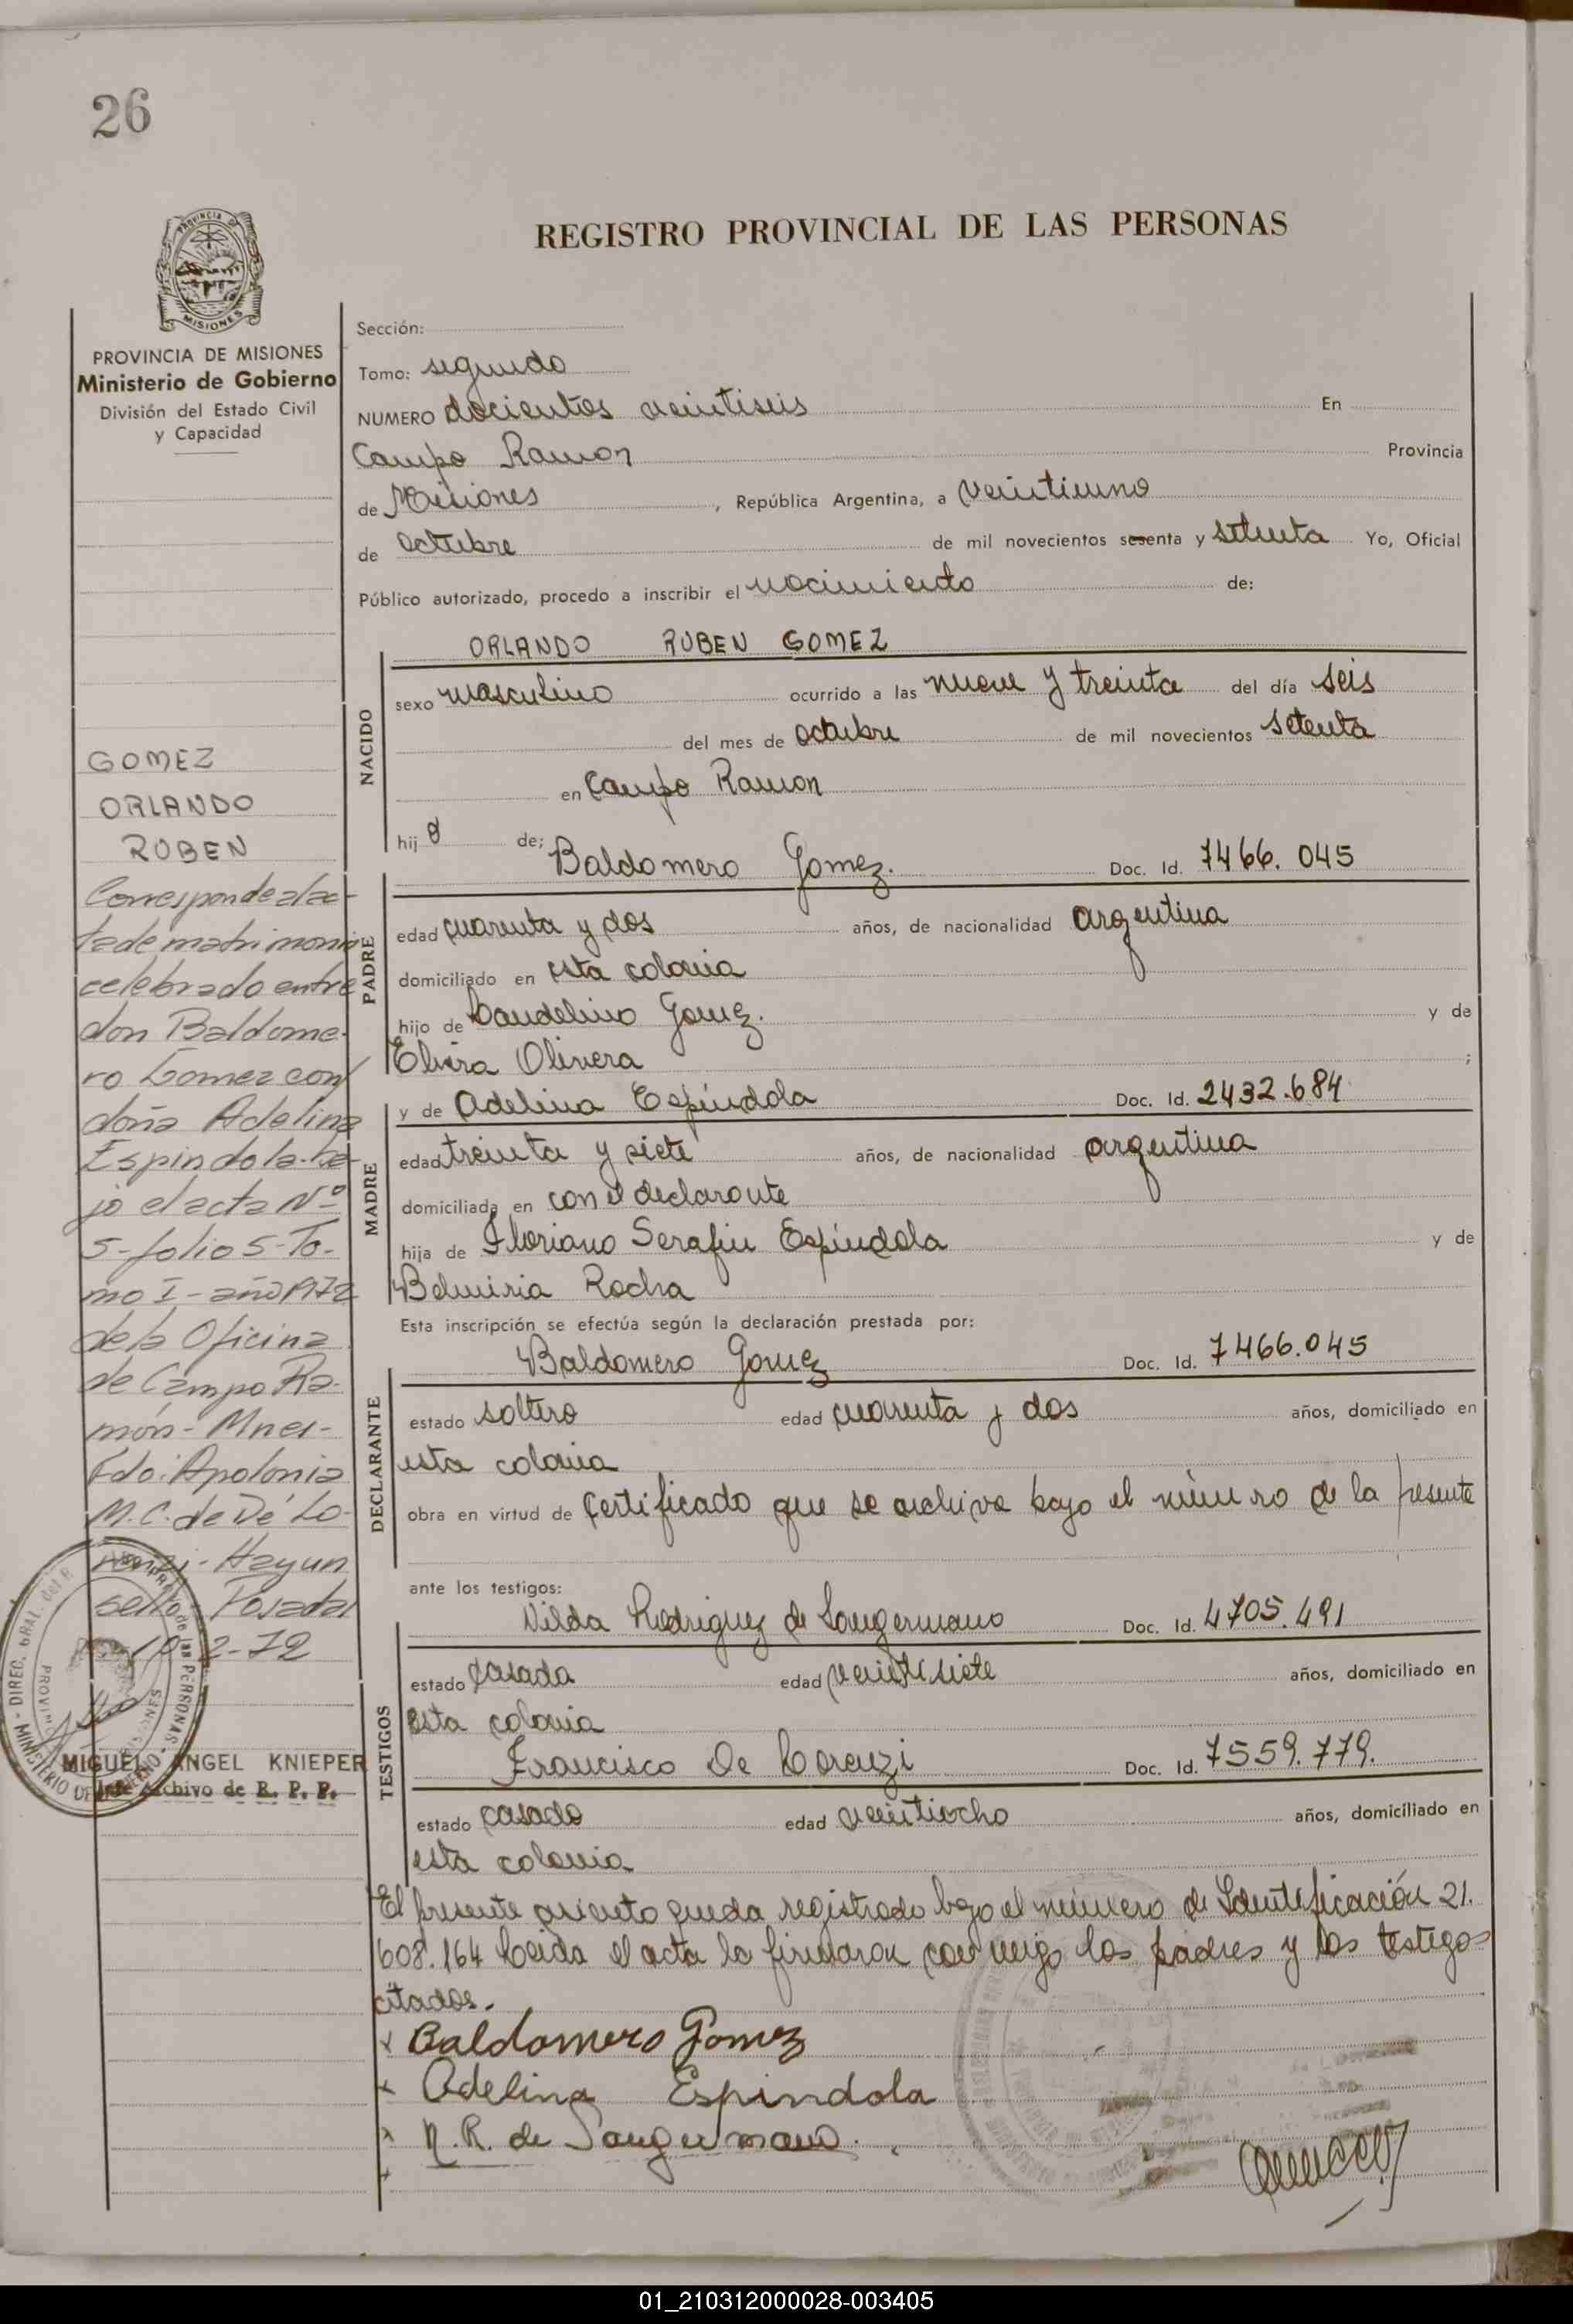 26
REGISTRO PROVINCIAL DE LAS PERSONAS
PROVINCIA DE MISIONES
PROVINCIA DE MISIONES
Ministerio de Gobierno
División del Estado Civil
y Capacidad
GOMEZ
ORLANDO
RUBEN
Corresponde al ac-
ta de matrimonio
celebrado entre
don Baldome-
ro Gomez con
doña Adelina
Espindola-ba-
jo el acta Nº
5-folio 5-To-
mo I-año 1972
de la Oficina
de Campo Ra-
món-Mnes-
Fdo: Apolonia
M.C. de De Lo-
renzi-Hay un
sello-Posadas
2-72
MIGUEL ANGEL KNIEPER
Jefe Archivo de R. P. P.
Sección:
Tomo: segundo
NUMERO docientos veintiseis En
Campo Ramon Provincia
de Misiones, República Argentina, a veintiuno
de octubre de mil novecientos sesenta y setenta Yo, Oficial
Público autorizado, procedo a inscribir el nacimiento de:
ORLANDO RUBEN GOMEZ
NACIDO
sexo masculino ocurrido a las nueve y treinta del día seis
del mes de octubre de mil novecientos setenta
en Campo Ramon
hij o de; Baldomero Gomez. Doc. Id. 7466.045
PADRE
edad cuarenta y dos años, de nacionalidad argentina
domiciliado en esta colonia
hijo de Candelino Gomez. y de
Elvira Olivera ;
y de Adelina Espíndola Doc. Id. 2432.684
MADRE
edad treinta y siete años, de nacionalidad argentina
domiciliada en con el declarante
hija de Floriano Serafin Espíndola y de
Belmiria Rocha
Esta inscripción se efectúa según la declaración prestada por:
Baldomero Gomez Doc. Id. 7466.045
DECLARANTE
estado soltero edad cuarenta y dos años, domiciliado en
esta colonia
obra en virtud de certificado que se archiva bajo el número de la presente
ante los testigos:
Nilda Rodriguez de Sangermano Doc. Id. 4705.491
TESTIGOS
estado casada edad veintisiete años, domiciliado en
esta colonia
Francisco De Lorenzi Doc. Id. 7559.779.
estado casado edad veintiocho años, domiciliado en
esta colonia
El presente asiento queda registrado bajo el número de Identificación 21.
608.164 Leida el acta la firmaron conmigo los padres y los testigos
citados.
x Baldomero Gomez
x Adelina Espindola
x N.R. de Sangermano.
x
01_210312000028-003405